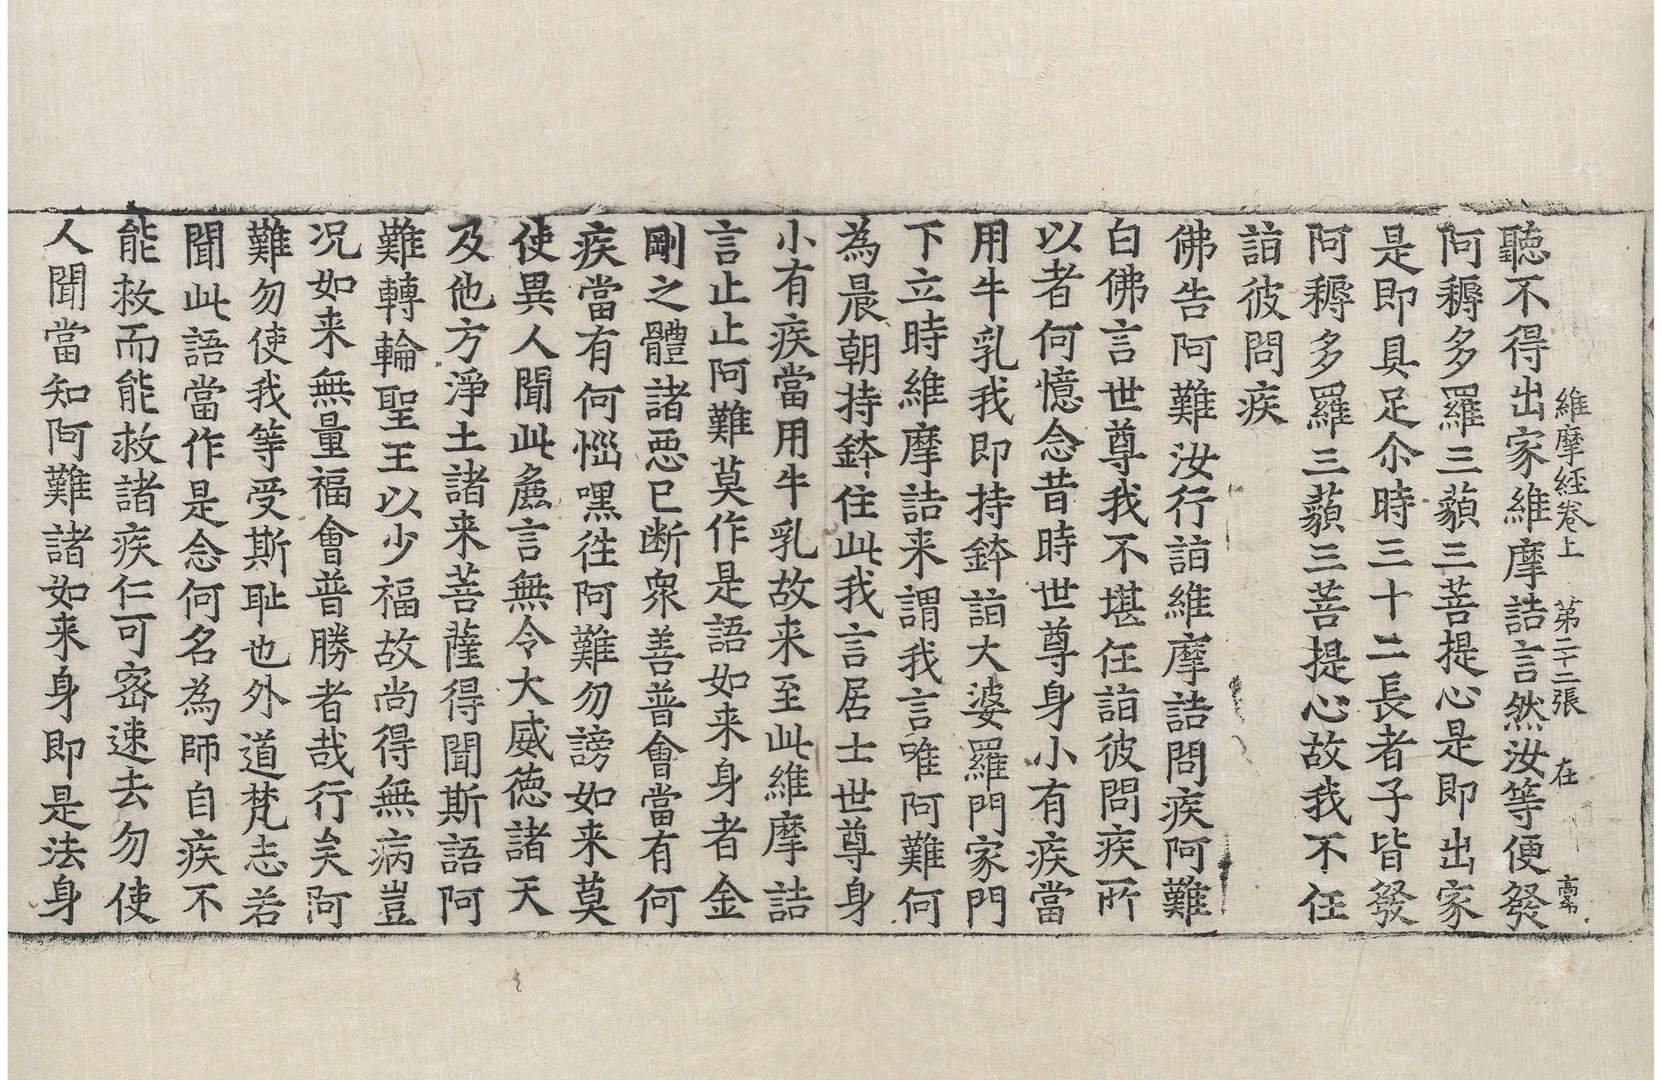 維摩經卷上 第二十二張 在
聽不得出家維摩詰言然汝等便發
阿耨多羅三藐三菩提心是即出家
是即具足尒時三十二長者子皆發
阿耨多羅三藐三菩提心故我不任
詣彼問疾
佛告阿難汝行詣維摩詰問疾阿難
白佛言世尊我不堪任詣彼問疾所
以者何憶念昔時世尊身小有疾當
用牛乳我即持鉢詣大婆羅門家門
下立時維摩詰来謂我言唯阿難何
為晨朝持鉢住此我言居士世尊身
小有疾當用牛乳故来至此維摩詰
言止止阿難莫作是語如来身者金
剛之體諸惡已断衆善普會當有何
疾當有何惱嘿徃阿難勿謗如来莫
使異人聞此麁言無令大威德諸天
及他方淨土諸来菩薩得聞斯語阿
難轉輪聖王以少福故尚得無病豈
况如来無量福會普勝者哉行矣阿
難勿使我等受斯耻也外道梵志若
聞此語當作是念何名為師自疾不
能救而能救諸疾仁可宻速去勿使
人聞當知阿難諸如来身即是法身